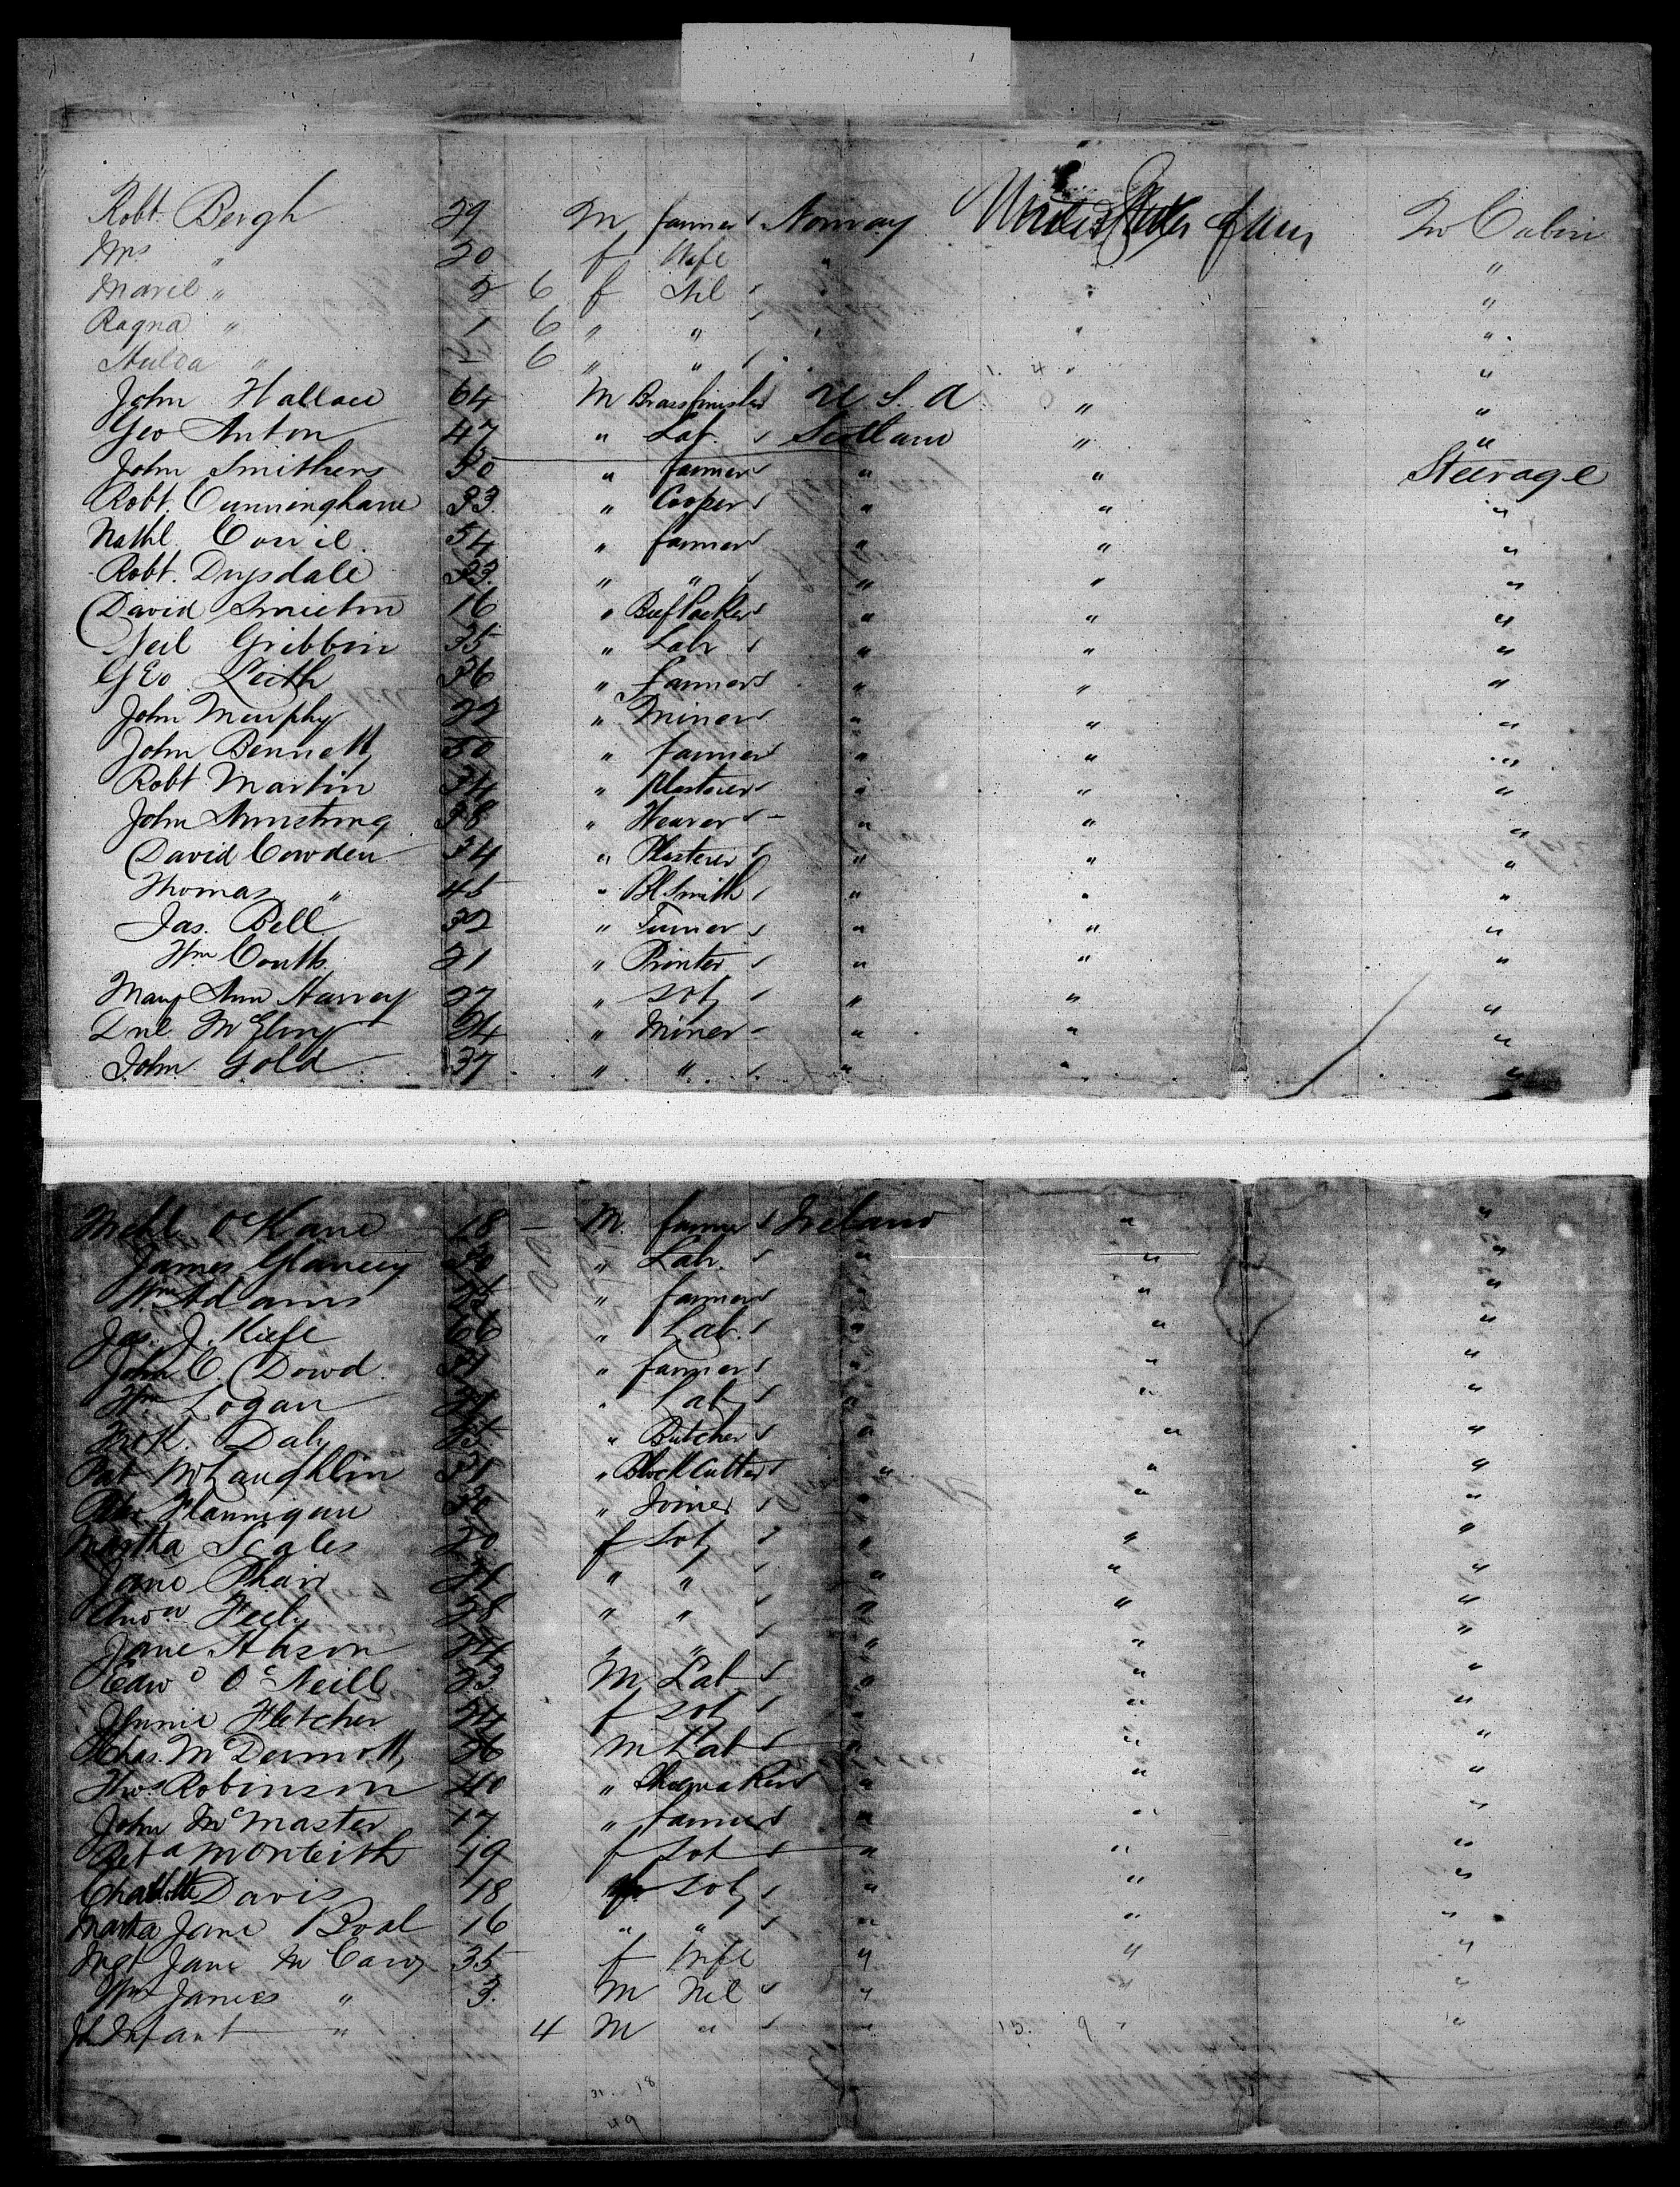 Robt. Bergh 29 M farmer Norway United States of Am In Cabin
Mrs " 20 f Wife " " "
" 2 6 f Nil " " "
Ragna " 1 6 " " " " "
Hulda " – 6 " " " "
John Wallace 64 M Brassfinisher U.S.A " "
Geo Anton 47 " Lab. Scotland " "
John Smithers 50 " farmer " " Steerage
Robt. Cunninghame 33 " Cooper " " "
Nathl 54 " farmer " " "
Robt. Drysdale 33 " " " " "
David Smieton 16 " " " "
Neil Gribbin 35 " Labr " " "
GEo. Leith 36 " farmer " " "
John Murphy 22 " Miner " " "
John Bennett 50 " farmer " " "
Robt Martin 34 " Plasterer " " "
John Armstrong 38 " Weaver " " "
David Cowden 34 " Plasterer " " "
Thomas " 45 " Bl Smith " " "
Jas. Bell 32 " Turner " " "
Wm Coutts 21 " Printer " " "
Mary Ann Harvey 27 " " " "
Dnl McElroy 24 " Miner " " "
John Gold 37 " " " " "
Mchl O'Kane 18 – M. farmer Ireland " "
James Glancey 30 " Labr. " " "
Wm Adams " farmer " " "
Jas. J. Kiefe 66 " Lab. " " "
John O. Dowd. " farmer " " "
Wm Logan " Lab " " "
Daly " Butcher " " "
Pat McLaughlin " Block Cutter " " "
Flannigan 30 " Joiner " " "
Martha Scales 20 f " " "
Jane Phair " " " " "
Feely 28 " " " " "
Jane 24 " " " " "
Edwd O'Neill 23 M Lab " " "
Fletcher 24 f " " "
Chas. McDermott 26 M Lab " " "
Thos Robinson 40 " Shoemaker " " "
John McMaster 17 " farmer " " "
Monteith 19 f " " "
Charlotte Davis 18 " " "
Martha Jane Boal 16 " " " " "
Mgt Jane 35 f Wife " " "
Wm James " 3 M Nil " " "
Infant " 4 M " " 15. 9 " "
31. 18
49